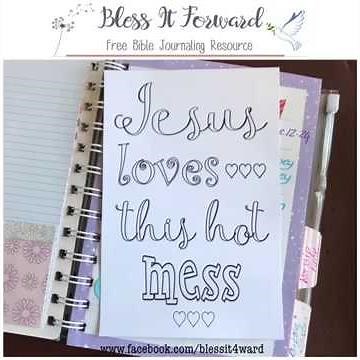 Bless It Forward
Free Bible Journaling Resource
Jesus
loves
this hot
mess
12-24
www.facebook.com/blessit4ward